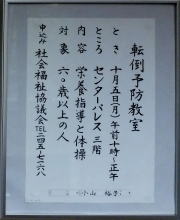 転倒予防教室
とき 十月五日(月)午前十時~正午
ところ センターパレス 三階
内容 栄養指導と体操
対象 六〇歳以上の人
申込み 社会福祉協議会 TEL二四五-七一六八
小山